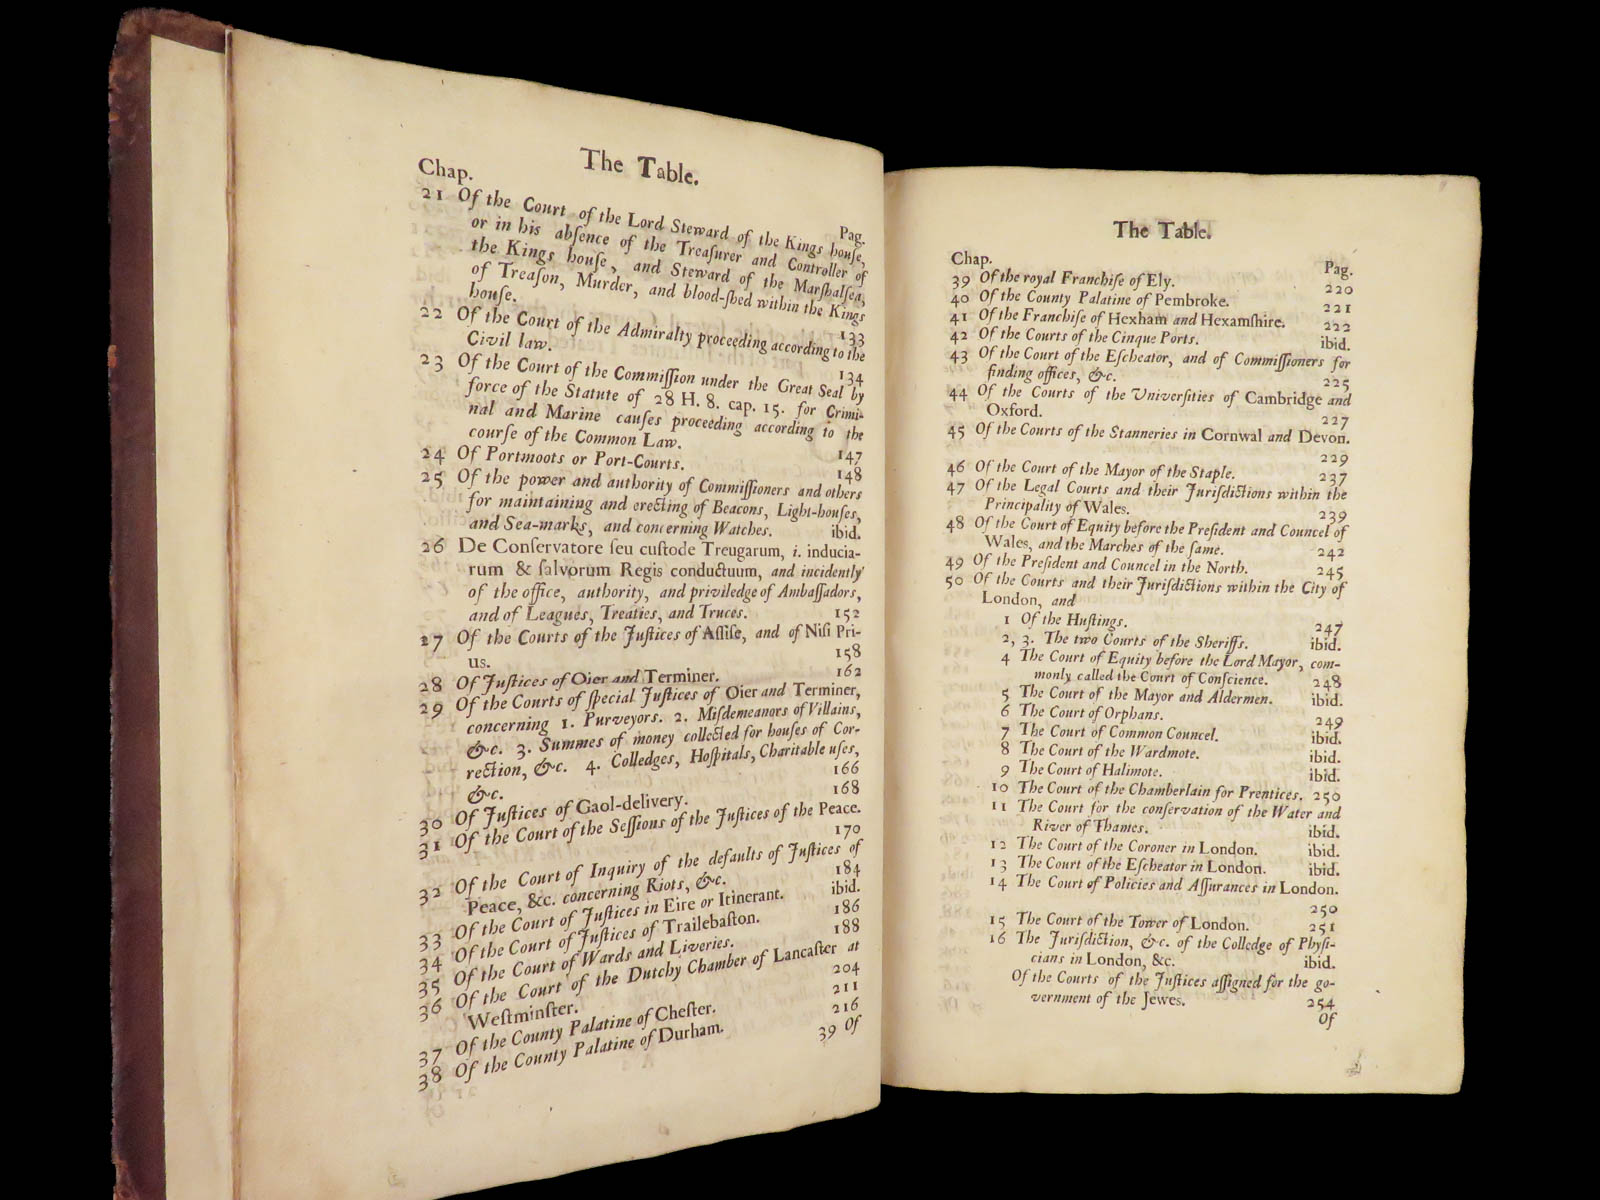 The Table.
Chap.
Pag.
21 Of the Court of the Lord Steward of the Kings houſe,
or in his abſence of the Treaſurer and Controller of
the Kings houſe, and Steward of the Marſhalſea,
of Treaſon, Murder, and blood-ſhed within the Kings
houſe. 133
22 Of the Court of the Admiralty proceeding according to the
Civil law. 134
23 Of the Court of the Commiſſion under the Great Seal by
force of the Statute of 28 H. 8. cap. 15. for Crimi-
nal and Marine cauſes proceeding according to the
courſe of the Common Law. 147
24 Of Portmoots or Port-Courts. 148
25 Of the power and authority of Commiſſioners and others
for maintaining and erecting of Beacons, Light-houſes,
and Sea-marks, and concerning Watches. ibid.
26 De Conſervatore ſeu cuſtode Treugarum, i. inducia-
rum & ſalvorum Regis conductuum, and incidently
of the office, authority, and priviledge of Ambaſſadors,
and of Leagues, Treaties, and Truces. 152
27 Of the Courts of the Juſtices of Aſſiſe, and of Niſi Pri-
us. 158
28 Of Juſtices of Oier and Terminer. 162
29 Of the Courts of ſpecial Juſtices of Oier and Terminer,
concerning 1. Purveyors. 2. Miſdemeanors of Villains,
&c. 3. Summes of money collected for houſes of Cor-
rection, &c. 4. Colledges, Hoſpitals, Charitable uſes,
&c. 166
30 Of Juſtices of Gaol-delivery. 168
31 Of the Court of the Seſſions of the Juſtices of the Peace.
170
32 Of the Court of Inquiry of the defaults of Juſtices of
Peace, &c. concerning Riots, &c. 184
33 Of the Court of Juſtices in Eire or Itinerant. ibid.
34 Of the Court of Juſtices of Trailebaſton. 186
35 Of the Court of Wards and Liveries. 188
36 Of the Court of the Dutchy Chamber of Lancaſter at
Weſtminſter. 204
37 Of the County Palatine of Cheſter. 211
38 Of the County Palatine of Durham. 216
39 Of
The Table.
Chap.
Pag.
39 Of the royal Franchiſe of Ely. 220
40 Of the County Palatine of Pembroke. 221
41 Of the Franchiſe of Hexham and Hexamſhire. 222
42 Of the Courts of the Cinque Ports. ibid.
43 Of the Court of the Eſcheator, and of Commiſſioners for
finding offices, &c. 225
44 Of the Courts of the Univerſities of Cambridge and
Oxford. 227
45 Of the Courts of the Stanneries in Cornwal and Devon.
229
46 Of the Court of the Mayor of the Staple. 237
47 Of the Legal Courts and their Juriſdictions within the
Principality of Wales. 239
48 Of the Court of Equity before the Preſident and Councel of
Wales, and the Marches of the ſame. 242
49 Of the Preſident and Councel in the North. 245
50 Of the Courts and their Juriſdictions within the City of
London, and
1 Of the Huſtings. 247
2, 3. The two Courts of the Sheriffs. ibid.
4 The Court of Equity before the Lord Mayor, com-
monly called the Court of Conſcience. 248
5 The Court of the Mayor and Aldermen. ibid.
6 The Court of Orphans. 249
7 The Court of Common Councel. ibid.
8 The Court of the Wardmote. ibid.
9 The Court of Halimote. ibid.
10 The Court of the Chamberlain for Prentices. 250
11 The Court for the conſervation of the Water and
River of Thames. ibid.
12 The Court of the Coroner in London. ibid.
13 The Court of the Eſcheator in London. ibid.
14 The Court of Policies and Aſſurances in London.
250
15 The Court of the Tower of London. 251
16 The Juriſdiction, &c. of the Colledge of Phyſi-
cians in London, &c. ibid.
Of the Courts of the Juſtices aſſigned for the go-
vernment of the Jewes. 254
Of